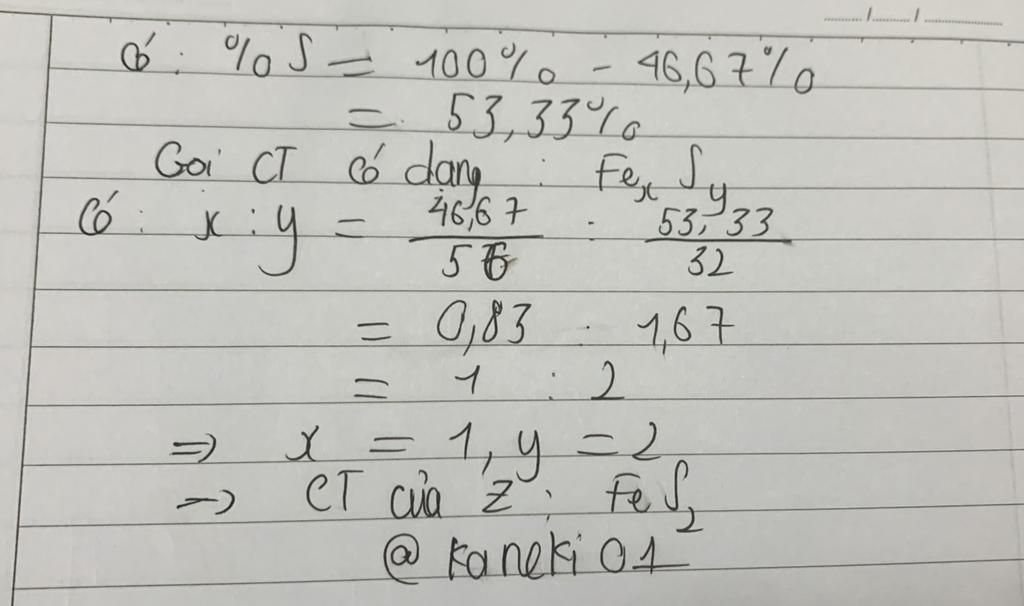 Có : % S = 100% - 46,67%
= 53,33%
Gọi CT có dạng : FexSy
Có : x : y = 46,67/56 : 53,33/32
= 0,83 : 1,67
= 1 : 2
=> x = 1, y = 2
=> CT của Z : FeS2
@kaneki01